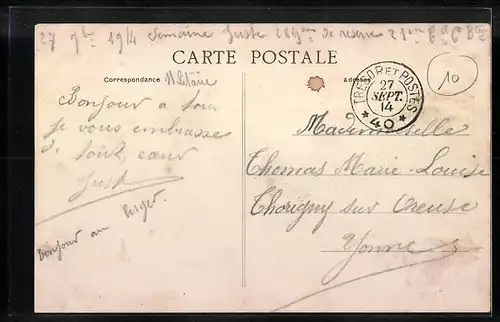 27 7bre 1914 Semaine Juste 28eme de reserve 21em
CARTE POSTALE
Correspondance Militaire
Adresse
TRESOR ET POSTES
27
SEPT.
14
* 40 *
10
Bonjour a tous
je vous embrasse
de tout cœur
Just
Bonjour au Berger.
Mademoiselle
Thomas Marie-Louise
Thorigny sur Oreuse
Yonne